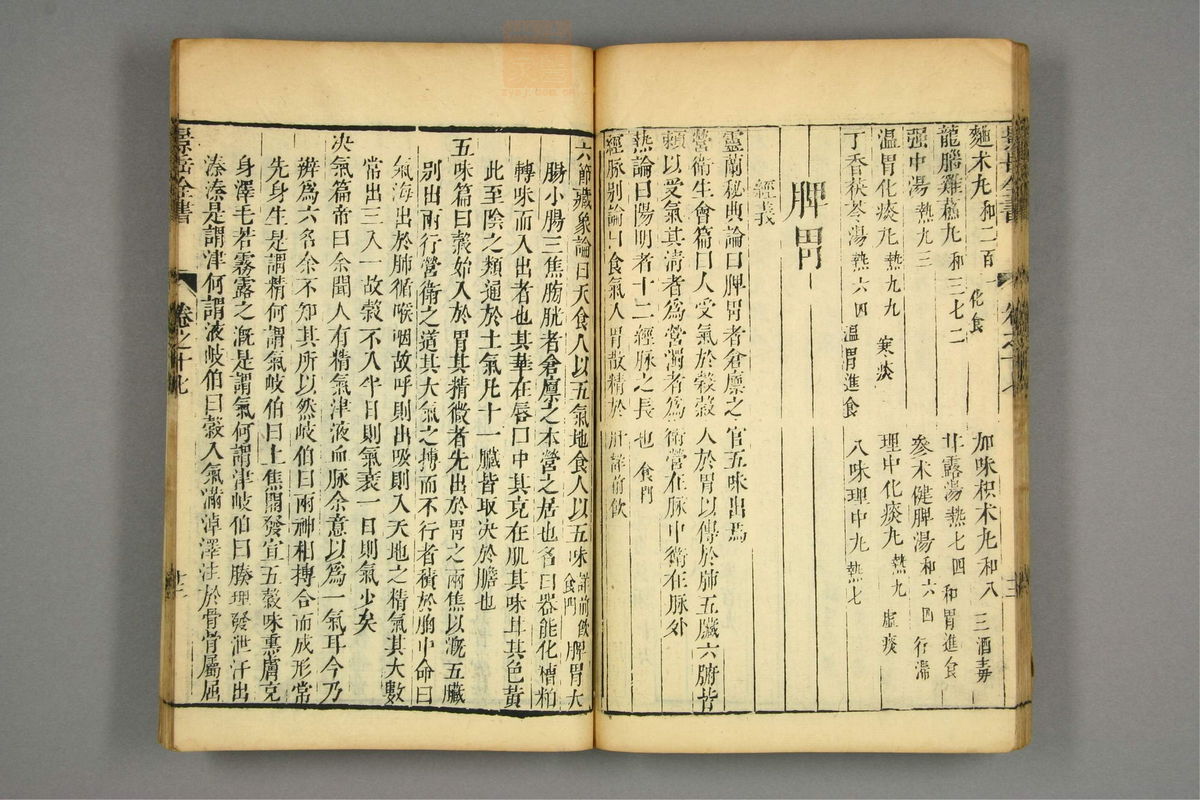 麯术丸和二百一　化食　加味枳术丸和八三　酒毒
龍腦雞蘇丸和三七二　甘露湯熱七四　和胃進食
强中湯熱九三　參术健脾湯和六四　行滯
温胃化痰丸熱九九　寒痰　理中化痰丸熱九　虛痰
丁香茯苓湯熱六四　温胃進食　八味理中丸熱七
脾胃
經義
靈蘭秘典論曰脾胃者倉廪之官五味出焉
營衛生會篇曰人受氣於穀穀入於胃以傳於肺五臟六腑皆
賴以受氣其清者為營濁者為衛營在脉中衛在脉外
熱論曰陽明者十二經脉之長也　食門
經脉别論曰食氣入胃散精於肝　詳前飲
六節藏象論曰天食人以五氣地食人以五味詳前飲食門脾胃大
腸小腸三焦膀胱者倉廪之本營之居也名曰器能化糟粕
轉味而入出者也其華在唇口中其充在肌其味甘其色黄
此至陰之類通於土氣凡十一臟皆取决於膽也
五味篇曰穀始入於胃其精微者先出於胃之兩焦以溉五臟
别出兩行營衛之道其大氣之摶而不行者積於胸中命曰
氣海出於肺循喉咽故呼則出吸則入天地之精氣其大數
常出三入一故穀不入半日則氣衰一日則氣少矣
决氣篇帝曰余聞人有精氣津液血脉余意以為一氣耳今乃
辨為六名余不知其所以然岐伯曰兩神相摶合而成形常
先身生是謂精何謂氣岐伯曰上焦開發宣五穀味熏膚充
身澤毛若霧露之溉是謂氣何謂津岐伯曰腠理發泄汗出
溱溱是謂津何謂液岐伯曰穀入氣滿淖澤注於骨骨屬屈
景岳全書　卷之十七　十二